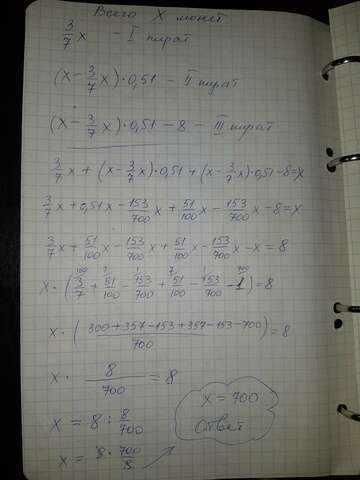 Всего X монет
3/7 x – I пират
(x – 3/7 x) · 0,51 – II пират
(x – 3/7 x) · 0,51 – 8 – III пират
3/7 x + (x – 3/7 x) · 0,51 + (x – 3/7 x) · 0,51 – 8 = x
3/7 x + 0,51x – 153/700 x + 51/100 x – 153/700 x – 8 = x
3/7 x + 51/100 x – 153/700 x + 51/100 x – 153/700 x – x = 8
x · (3/7 + 51/100 – 153/700 + 51/100 – 153/700 – 1) = 8
x · (300 + 357 – 153 + 357 – 153 – 700 / 700) = 8
x · 8/700 = 8
x = 8 : 8/700
x = 8 · 700/8
x = 700
Ответ